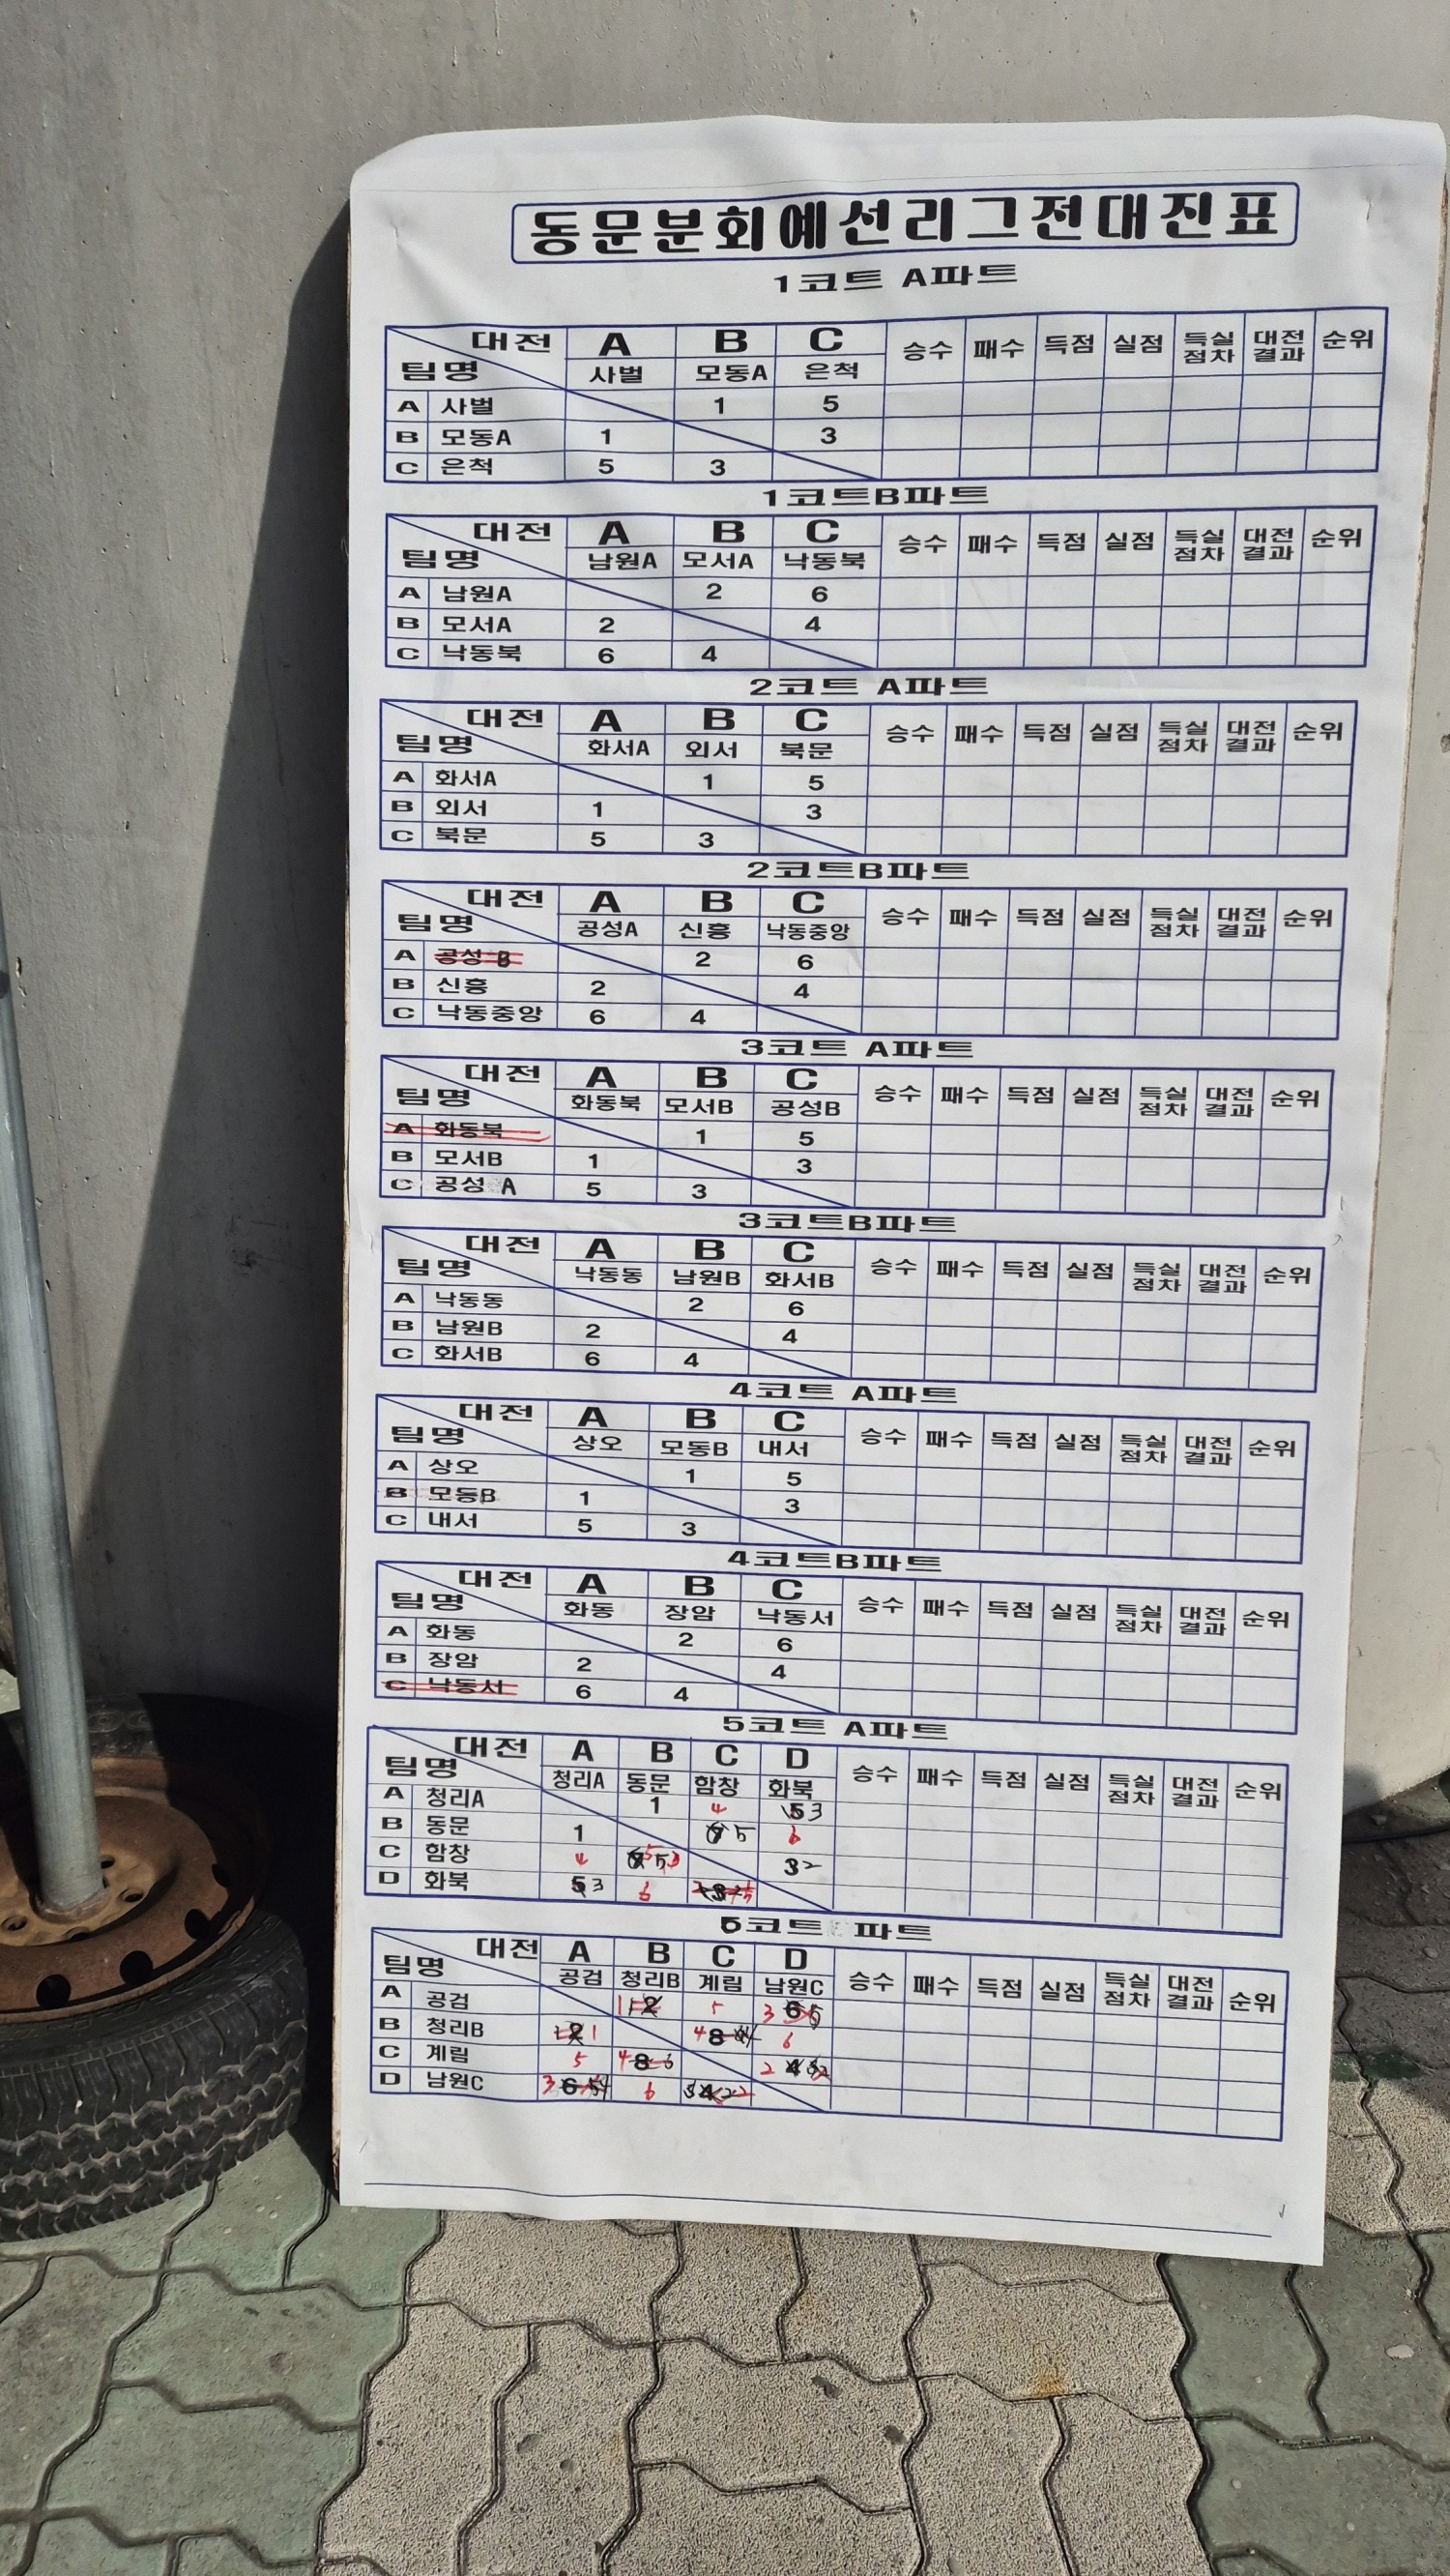 동문분회예선리그전대진표
1코트 A파트
대전 A B C 승수 패수 득점 실점 득실점차 대전결과 순위
팀명 사벌 모동A 은척
A 사벌 1 5
B 모동A 1 3
C 은척 5 3
1코트B파트
대전 A B C 승수 패수 득점 실점 득실점차 대전결과 순위
팀명 남원A 모서A 낙동북
A 남원A 2 6
B 모서A 2 4
C 낙동북 6 4
2코트 A파트
대전 A B C 승수 패수 득점 실점 득실점차 대전결과 순위
팀명 화서A 외서 북문
A 화서A 1 5
B 외서 1 3
C 북문 5 3
2코트B파트
대전 A B C 승수 패수 득점 실점 득실점차 대전결과 순위
팀명 공성A 신흥 낙동중앙
A 공성 B 2 6
B 신흥 2 4
C 낙동중앙 6 4
3코트 A파트
대전 A B C 승수 패수 득점 실점 득실점차 대전결과 순위
팀명 화동북 모서B 공성B
A 화동북 1 5
B 모서B 1 3
C 공성 A 5 3
3코트B파트
대전 A B C 승수 패수 득점 실점 득실점차 대전결과 순위
팀명 낙동동 남원B 화서B
A 낙동동 2 6
B 남원B 2 4
C 화서B 6 4
4코트 A파트
대전 A B C 승수 패수 득점 실점 득실점차 대전결과 순위
팀명 상오 모동B 내서
A 상오 1 5
B 모동B 1 3
C 내서 5 3
4코트B파트
대전 A B C 승수 패수 득점 실점 득실점차 대전결과 순위
팀명 화동 장암 낙동서
A 화동 2 6
B 장암 2 4
C 낙동서 6 4
5코트 A파트
대전 A B C D 승수 패수 득점 실점 득실점차 대전결과 순위
팀명 청리A 동문 함창 화북
A 청리A 1 4 5 3
B 동문 1 5 6
C 함창 4 5 3 2
D 화북 5 3 6
6코트 파트
대전 A B C D 승수 패수 득점 실점 득실점차 대전결과 순위
팀명 공검 청리B 계림 남원C
A 공검 1 2 5 3 6 5
B 청리B 2 1 4 8 6
C 계림 5 4 8 2 4
D 남원C 3 6 5 6 4 2